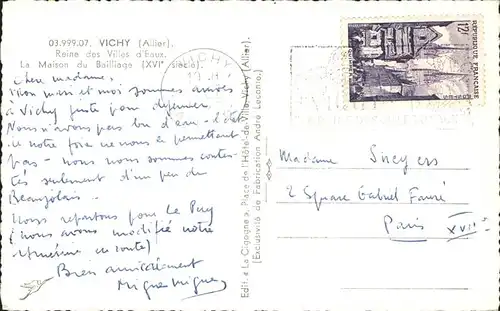 03.999.07. VICHY (Allier).
Reine des Villes d'Eaux.
La Maison du Bailliage (XVIe siècle).
Chère madame,
Mon mari et moi sommes arrivés
à Vichy juste pour déjeuner.
Nous n'avons pas bu d'eau - l'état
de notre foie ne nous le permettant
pas - nous nous sommes conten-
tés seulement d'un peu de
Beaujolais.
Nous repartons pour Le Puy
(nous avons modifié notre
itinéraire en route)
Bien amicalement
Edit. « La Cigogne », Place de l'Hôtel-de-Ville, Vichy (Allier)
(Exclusivité de Fabrication André Leconte.)
VICHY
12F
REPUBLIQUE FRANÇAISE
QUIMPER
Madame
2 Square Gabriel Fauré
Paris XVIIe